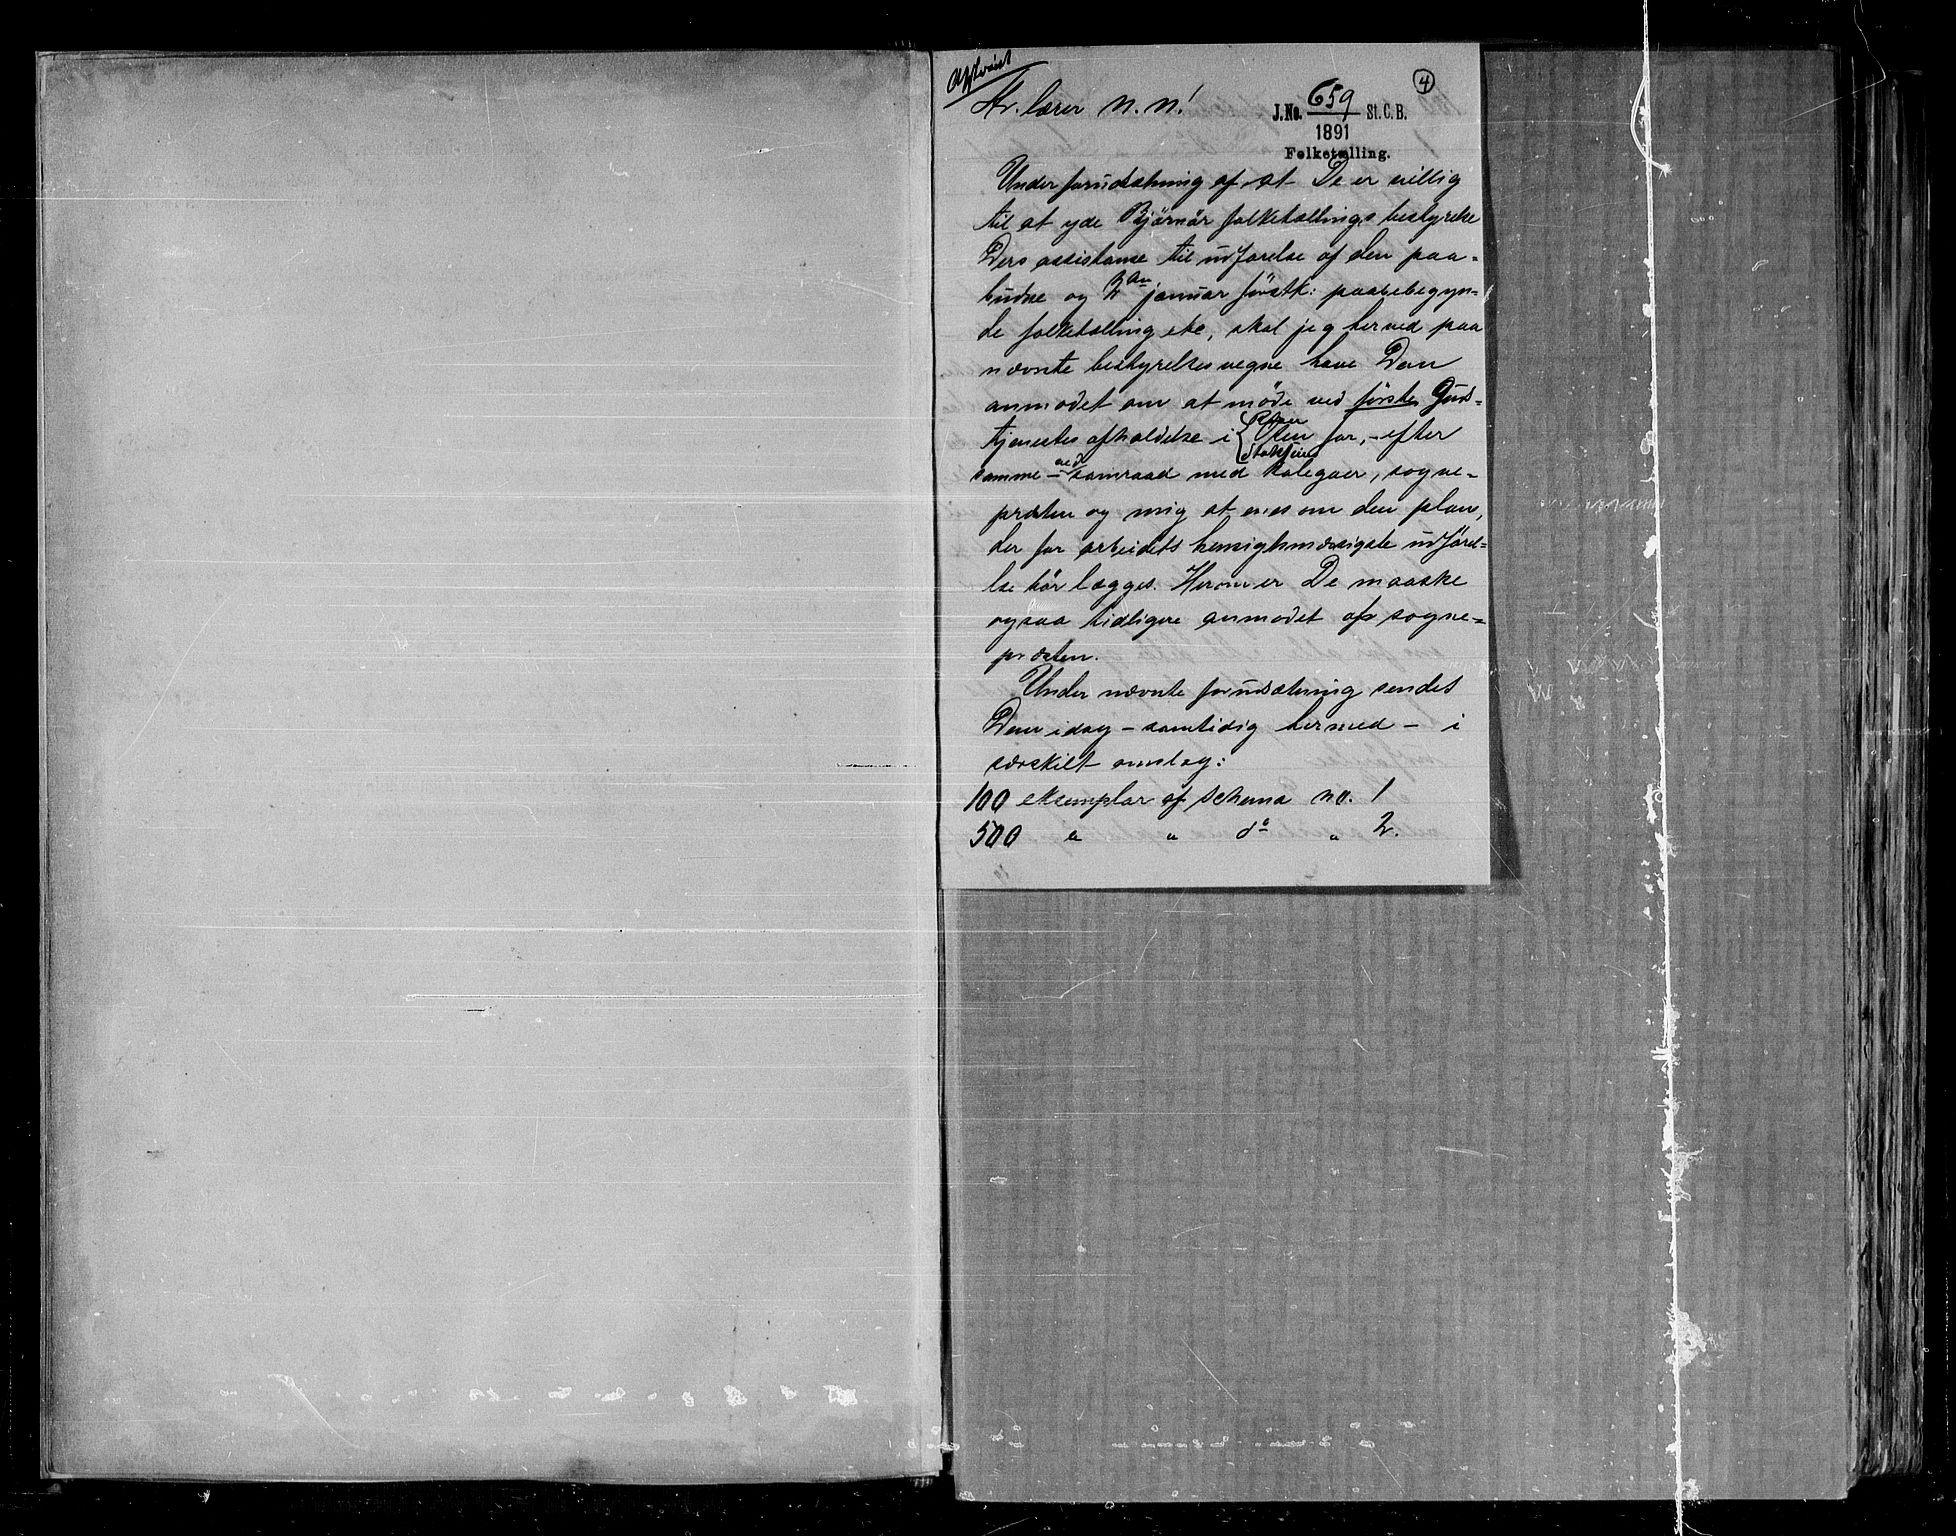 Afskrift
4
Hr. lærer N. N!
J. No. 659 St. C. B.
1891
Folketælling.
Under forudsætning af at De er villig
til at yde Bjørnør folketællings bestyrelse
Ders assistanse til udførelse af den paa-
budne og 2den januar førstk: paabebegyn-
de folketælling etc, skal jeg herved paa
nævnte bestyrelses vegne have Dem
anmodet om at møde ved første Guds-
tjenestes afholdelse i Osen
Stoksund
for, - efter
samme - ved samraad med kolegaer, sogne-
præsten og mig at enes om den plan,
der for arbeidets hensigtsmæssigste udførel-
se bør lægges. Herom er De maaske
ogsaa tidligere anmodet af sogne-
præsten.
Under nævnte forudsætning sendes
Dem idag - samtidig hermed - i
særskilt omslag:
100 eksemplar af schema no. 1
500 " " do " 2.